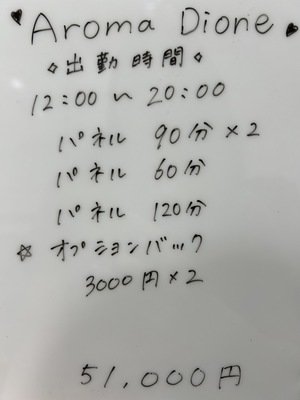 ♥ Aroma Dione ♥
◇出勤時間◇
12:00 〜 20:00
パネル 90分 × 2
パネル 60分
パネル 120分
☆ オプションバック
3000円 × 2
51,000円